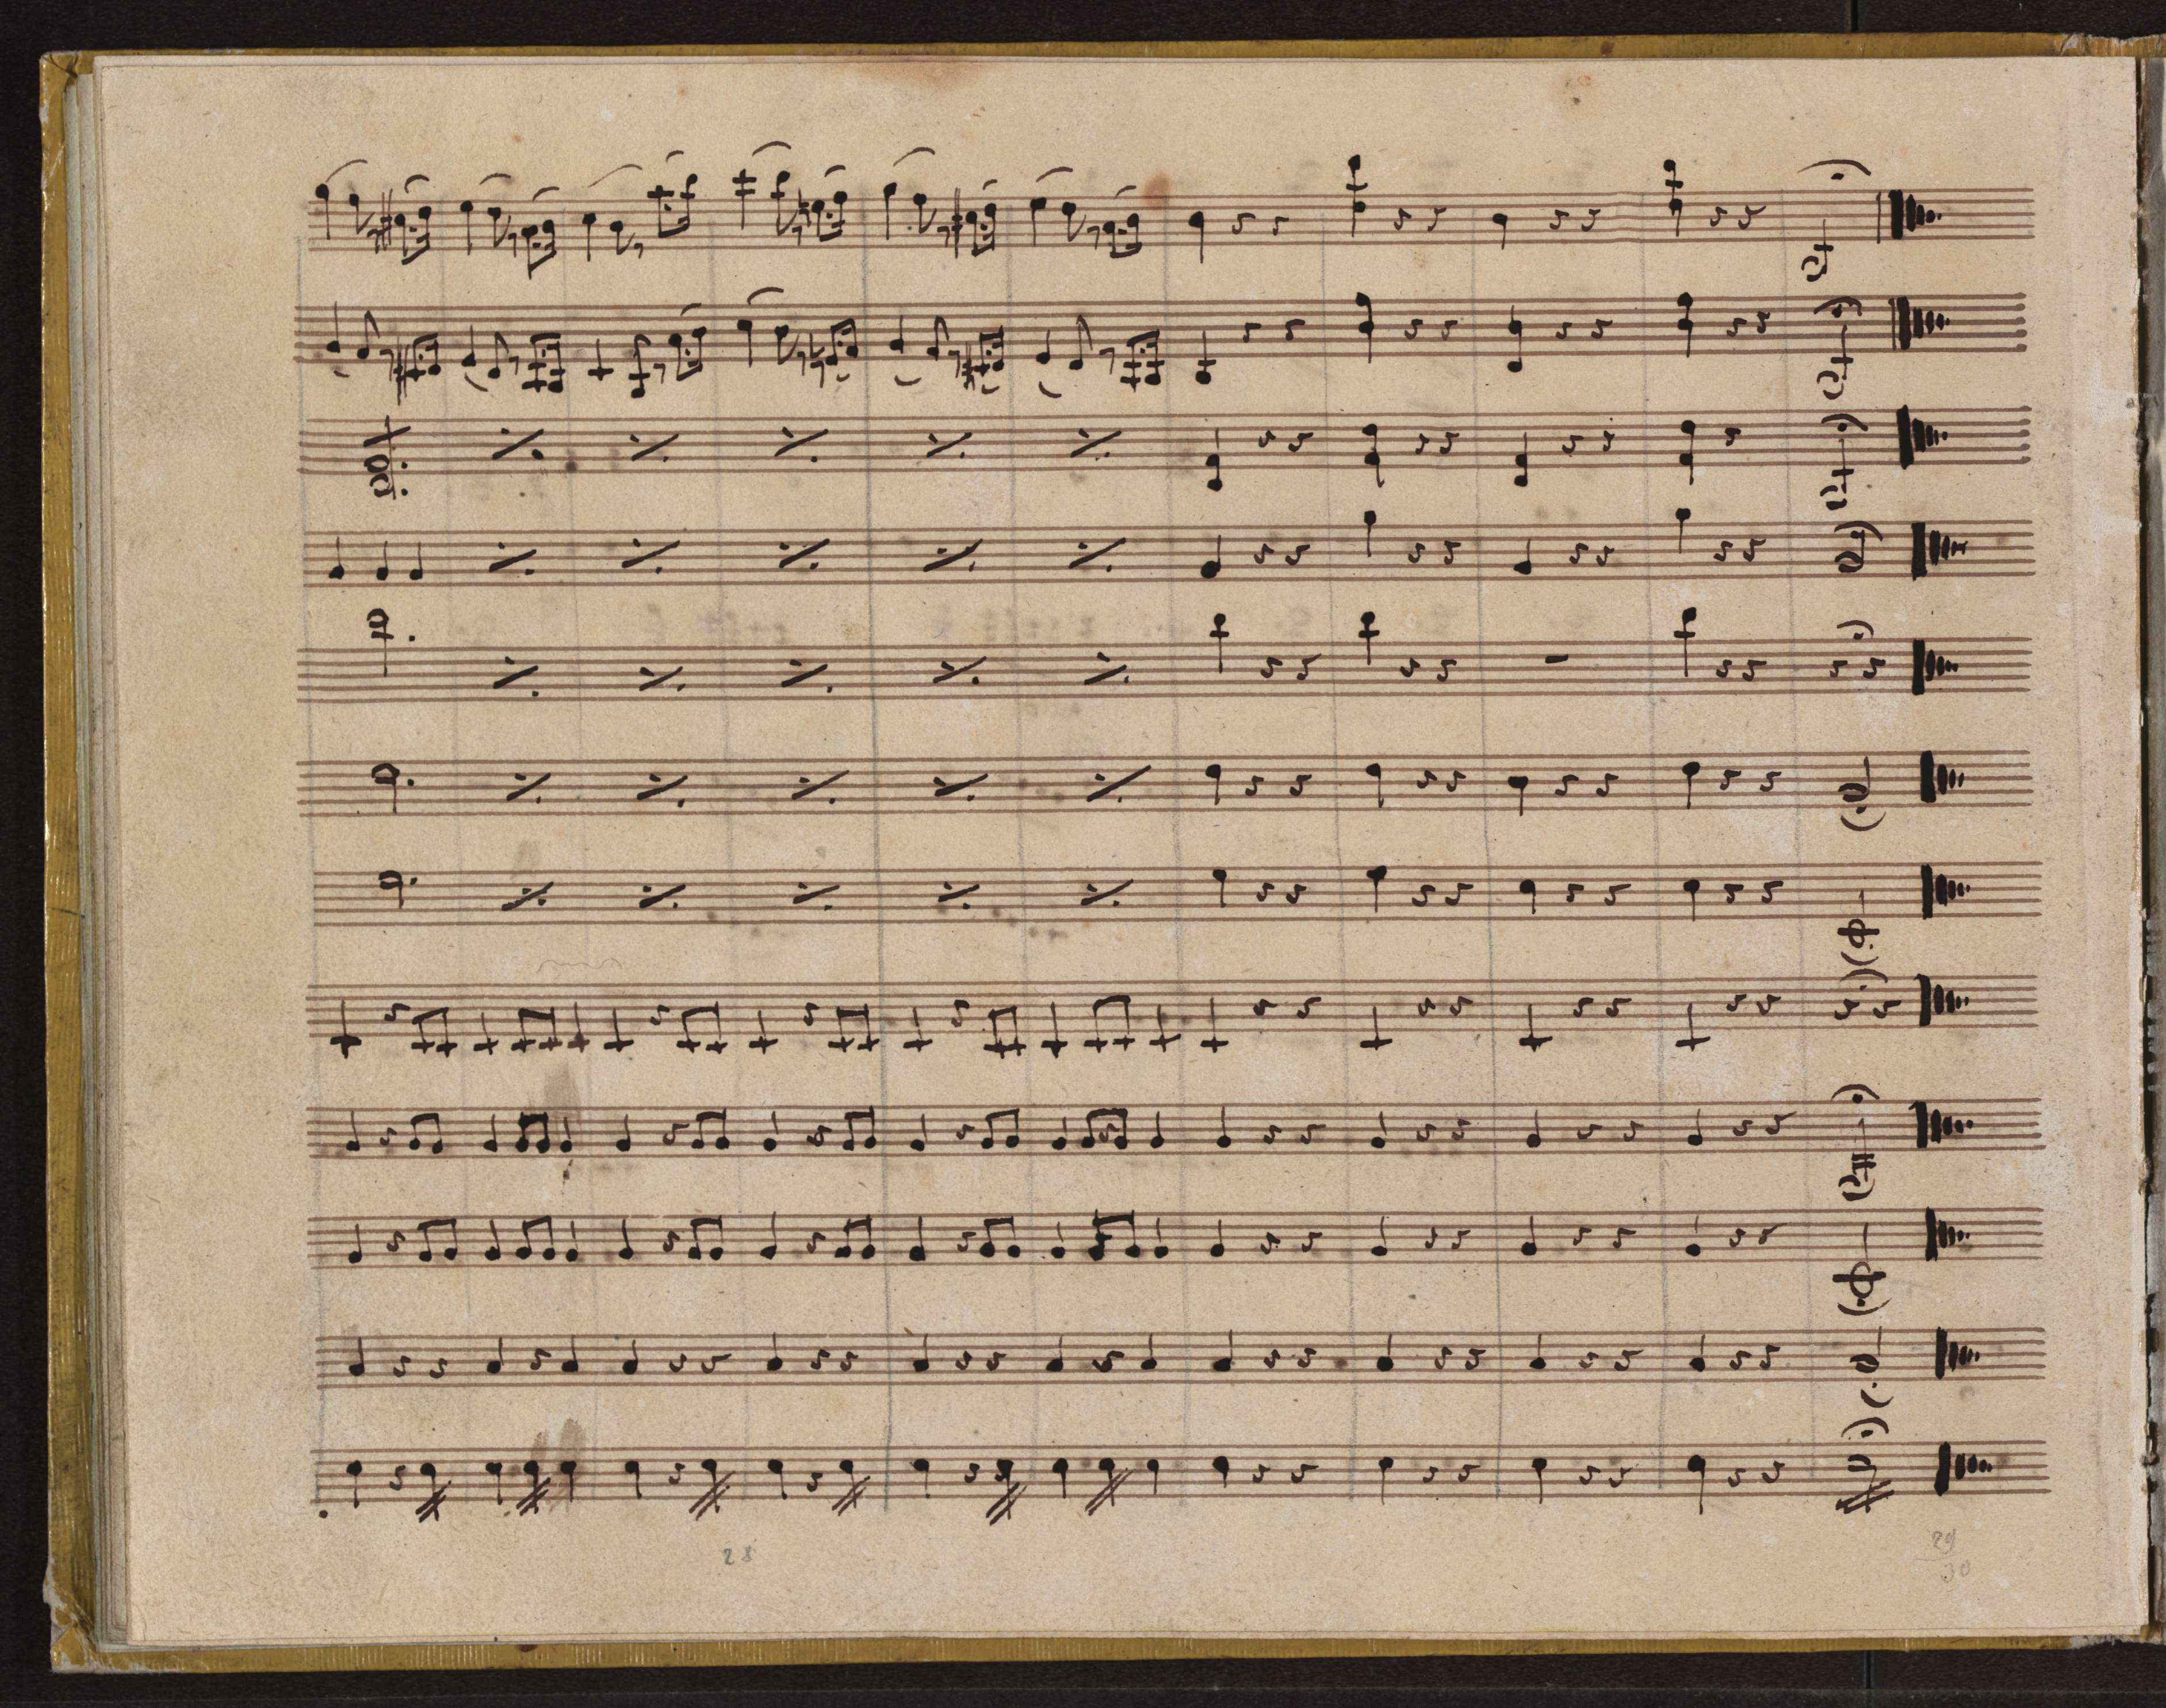 28
29
30